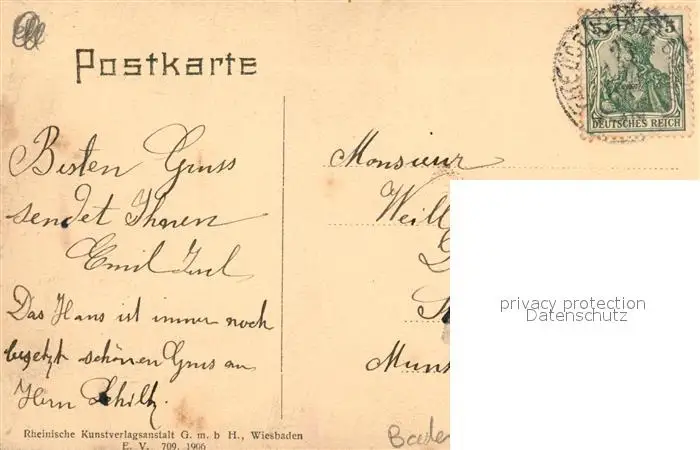 Postkarte
5 5
DEUTSCHES REICH
Besten Gruss
sendet Ihnen
Emil
Das Haus ist immer noch
besetzt schönen Gruss an
Herrn
Monsieur
Weill
Muns
privacy protection
Datenschutz
Rheinische Kunstverlagsanstalt G. m. b H., Wiesbaden
E. V. 709. 1906
Baden